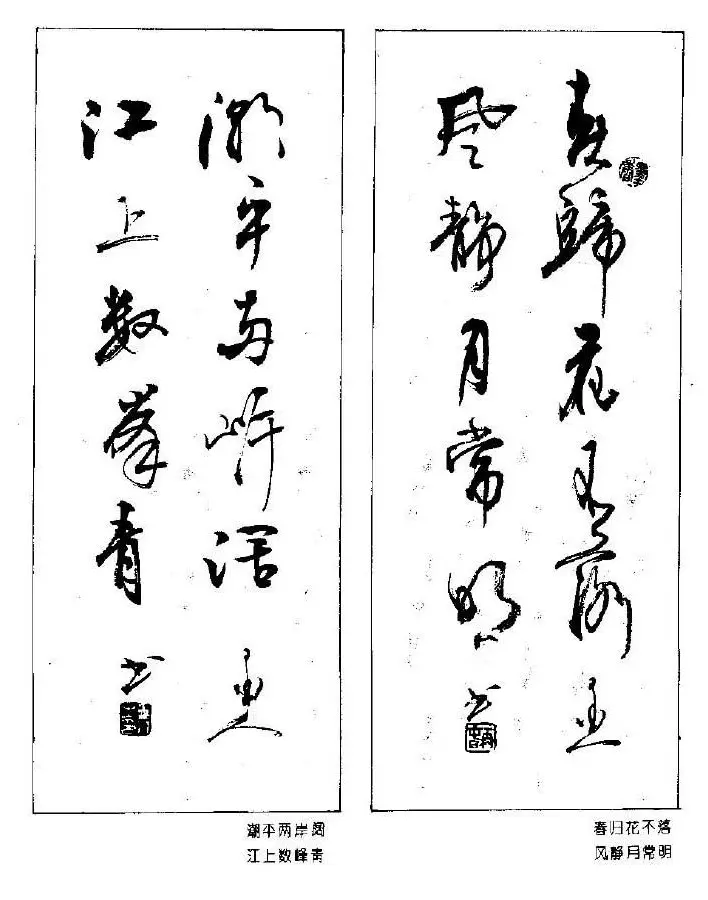 春歸花不落
風静月常明 书
潮平两岸濶
江上数峯青 书
潮平两岸阔
江上数峰青
春归花不落
风静月常明